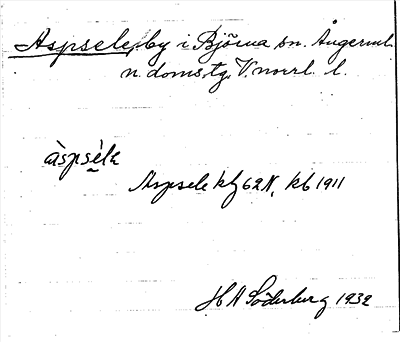 Aspsele, by i Björna sn. Ångerml.
n. domstg. V. norrl. l.
àspsèlɛ
Aspsele kbg 62 N, kb 1911
H A Söderberg 1932